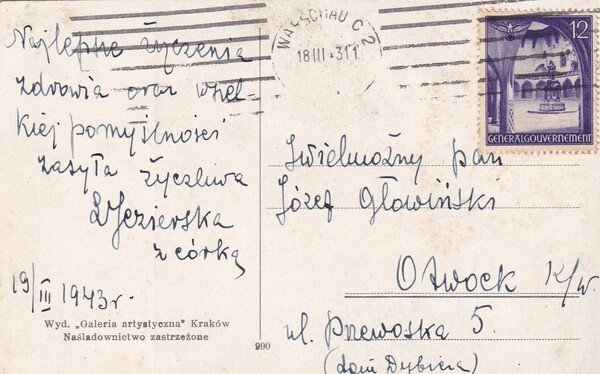 Najlepsze życzenia
zdrowia oraz wszel-
kiej pomyślności
zasyła życzliwa
Jezierska
z córką
19/III 1943r.
Wyd. „Galeria artystyczna" Kraków
Naśladownictwo zastrzeżone
990
WARSCHAU C 2
18 III 43 11
12
GENERALGOUVERNEMENT
Jwielmożny pan
Józef Głowiński
Otwock K/W.
ul. Przewoska 5.
(dom Dybicza)